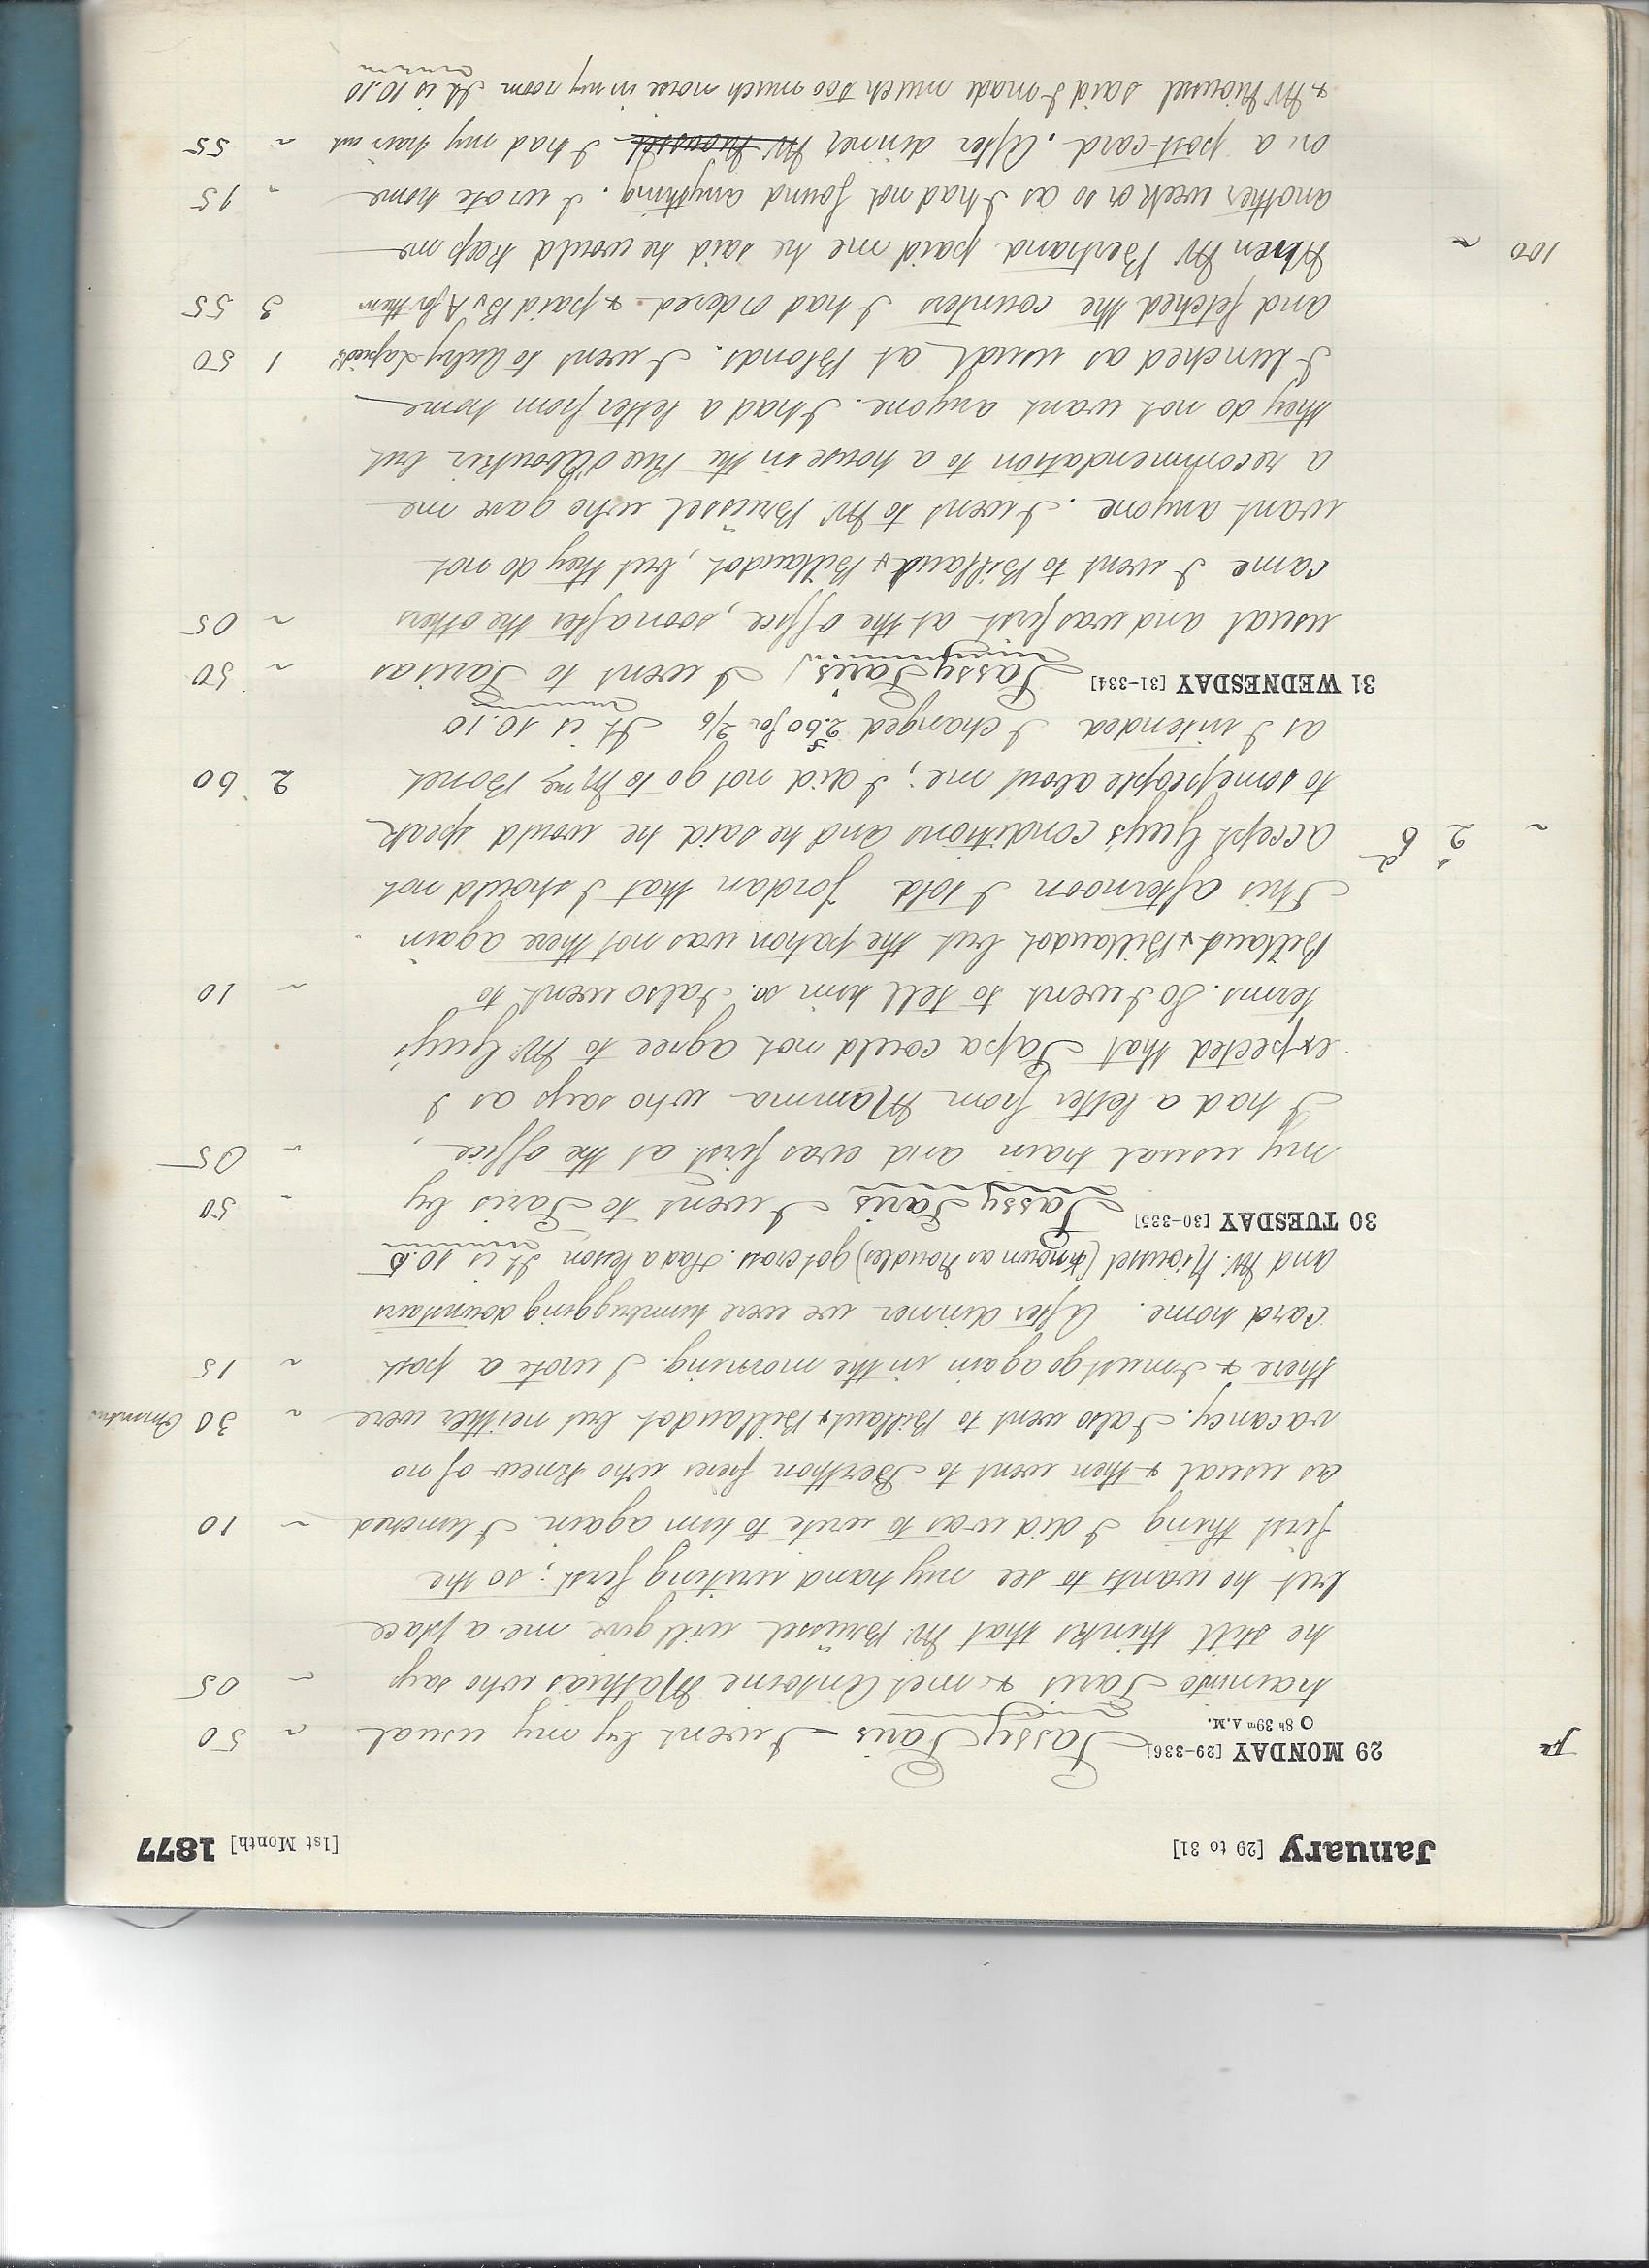 January [29 to 31] [1st Month] 1877
29 MONDAY [29-336] Passy Paris I went by my usual ~ 50
O 8h 39m A.M.
train to Paris & met Antoine Mathias who says ~ 05
he still thinks that Mr. Brüssel will give me a place
but he wants to see my hand writing first; so the
first thing I did was to write to him again. I lunched ~ 10
as usual & then went to Berthon frères who knew of no
vacancy. I also went to Billaud & Billaudot but neither were ~ 30 Omnibus
there & I must go again in the morning. I wrote a post ~ 15
card home. After dinner we were humbugging downstairs
and Mr. Nioussel (known as Noudles) got cross. Had a lesson It is 10.5
30 TUESDAY [30-335] Passy Paris I went to Paris by ~ 50
my usual train and was first at the office, ~ 05
I had a letter from Mamma who says as I
expected that Papa could not agree to Mr. Guy's
terms. So I went to tell him so. I also went to ~ 10
Billaud & Billaudot but the patron was not there again
This afternoon I told Jordan that I should not
~ 2 6 accept Guy's conditions and he said he would speak
to some people about me; I did not go to Mme Bonet 2 60
as I intended I changed 2.60 for 2/6 It is 10.10
31 WEDNESDAY [31-334] Passy Paris, I went to Paris as ~ 50
usual and was first at the office, soon after the others ~ 05
came I went to Billaud & Billaudot, but they do not
want anyone. I went to Mr. Brüssel who gave me
a recommendation to a house in the Rue d'Aboukir but
they do not want anyone. I had a letter from home
I lunched as usual at Blonds. I went to 1 50
and fetched the counters I had ordered & paid for them 3 55
100 ~ When Mr Bertrand paid me he said he would keep me
another week or so as I had not found anything. I wrote home ~ 15
on a post-card. After dinner Mr Nioussel I had my hair cut ~ 55
& Mr Nioussel said I made much too much noise in my room It is 10.10